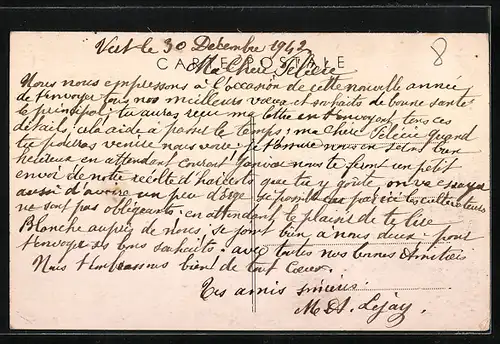 Vert le 30 Décembre 1942
CARTE POSTALE
Ma Chere Félicie
Nous nous empressons à l'occasion de cette nouvelle année
de t'envoyer tous nos meilleurs vœux et souhaits de bonne santé
le principal; tu auras reçu ma lettre en t'envoyant tous ces
détails; cela aide à passer le temps; ma chere Felicie quand
tu pourras venir nous voir; nous en seront bien
heureux en attendant Courage! Janvier nous te ferons un petit
envoi de notre récolte d'haricots que tu y goute, on va essayer
aussi d'avoir un peu d'orge si possible car par ici les cultivateurs
ne sont pas obligeants; en attendant le plaisir de te lire
Blanche auprès de nous; se joint bien à nous deux; pour
t'envoyer ses bons souhaits; avec toutes nos bonnes Amitiés
Nous t'embrassons bien de tout Cœur.
Tes amis sincères.
M Lejay.
8